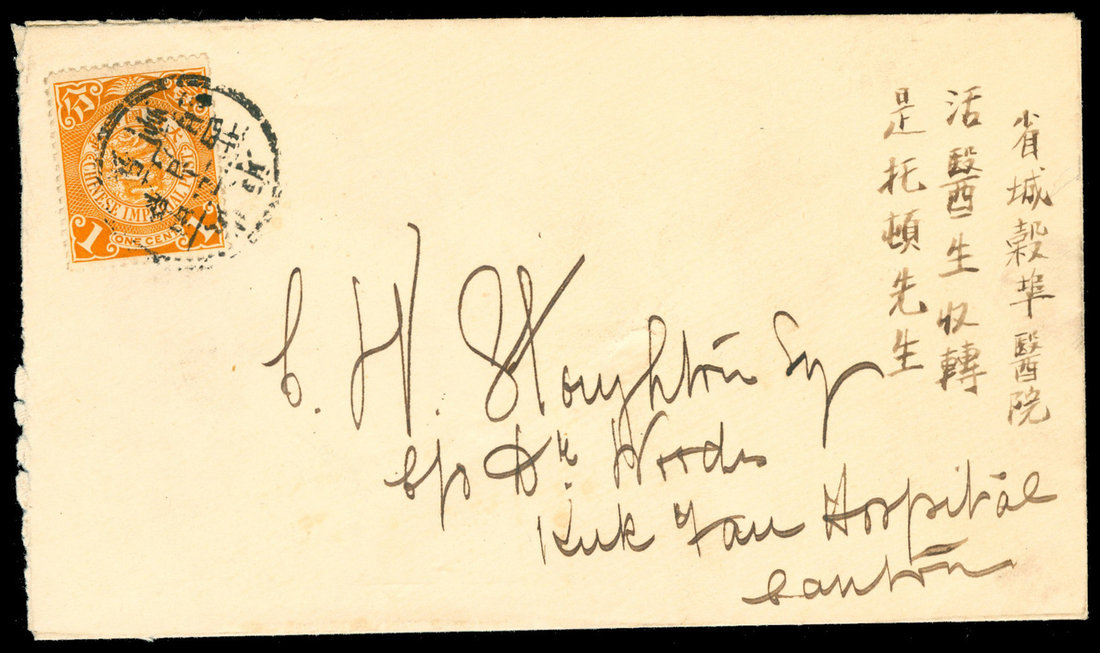 分
CHINESE IMPERIAL POST
1
ONE CENT
1
省城穀埠醫院
活醫生收轉
是托頓先生
C. H. Stoughton Esq
c/o Dr Woods
Kuk Fau Hospital
Canton